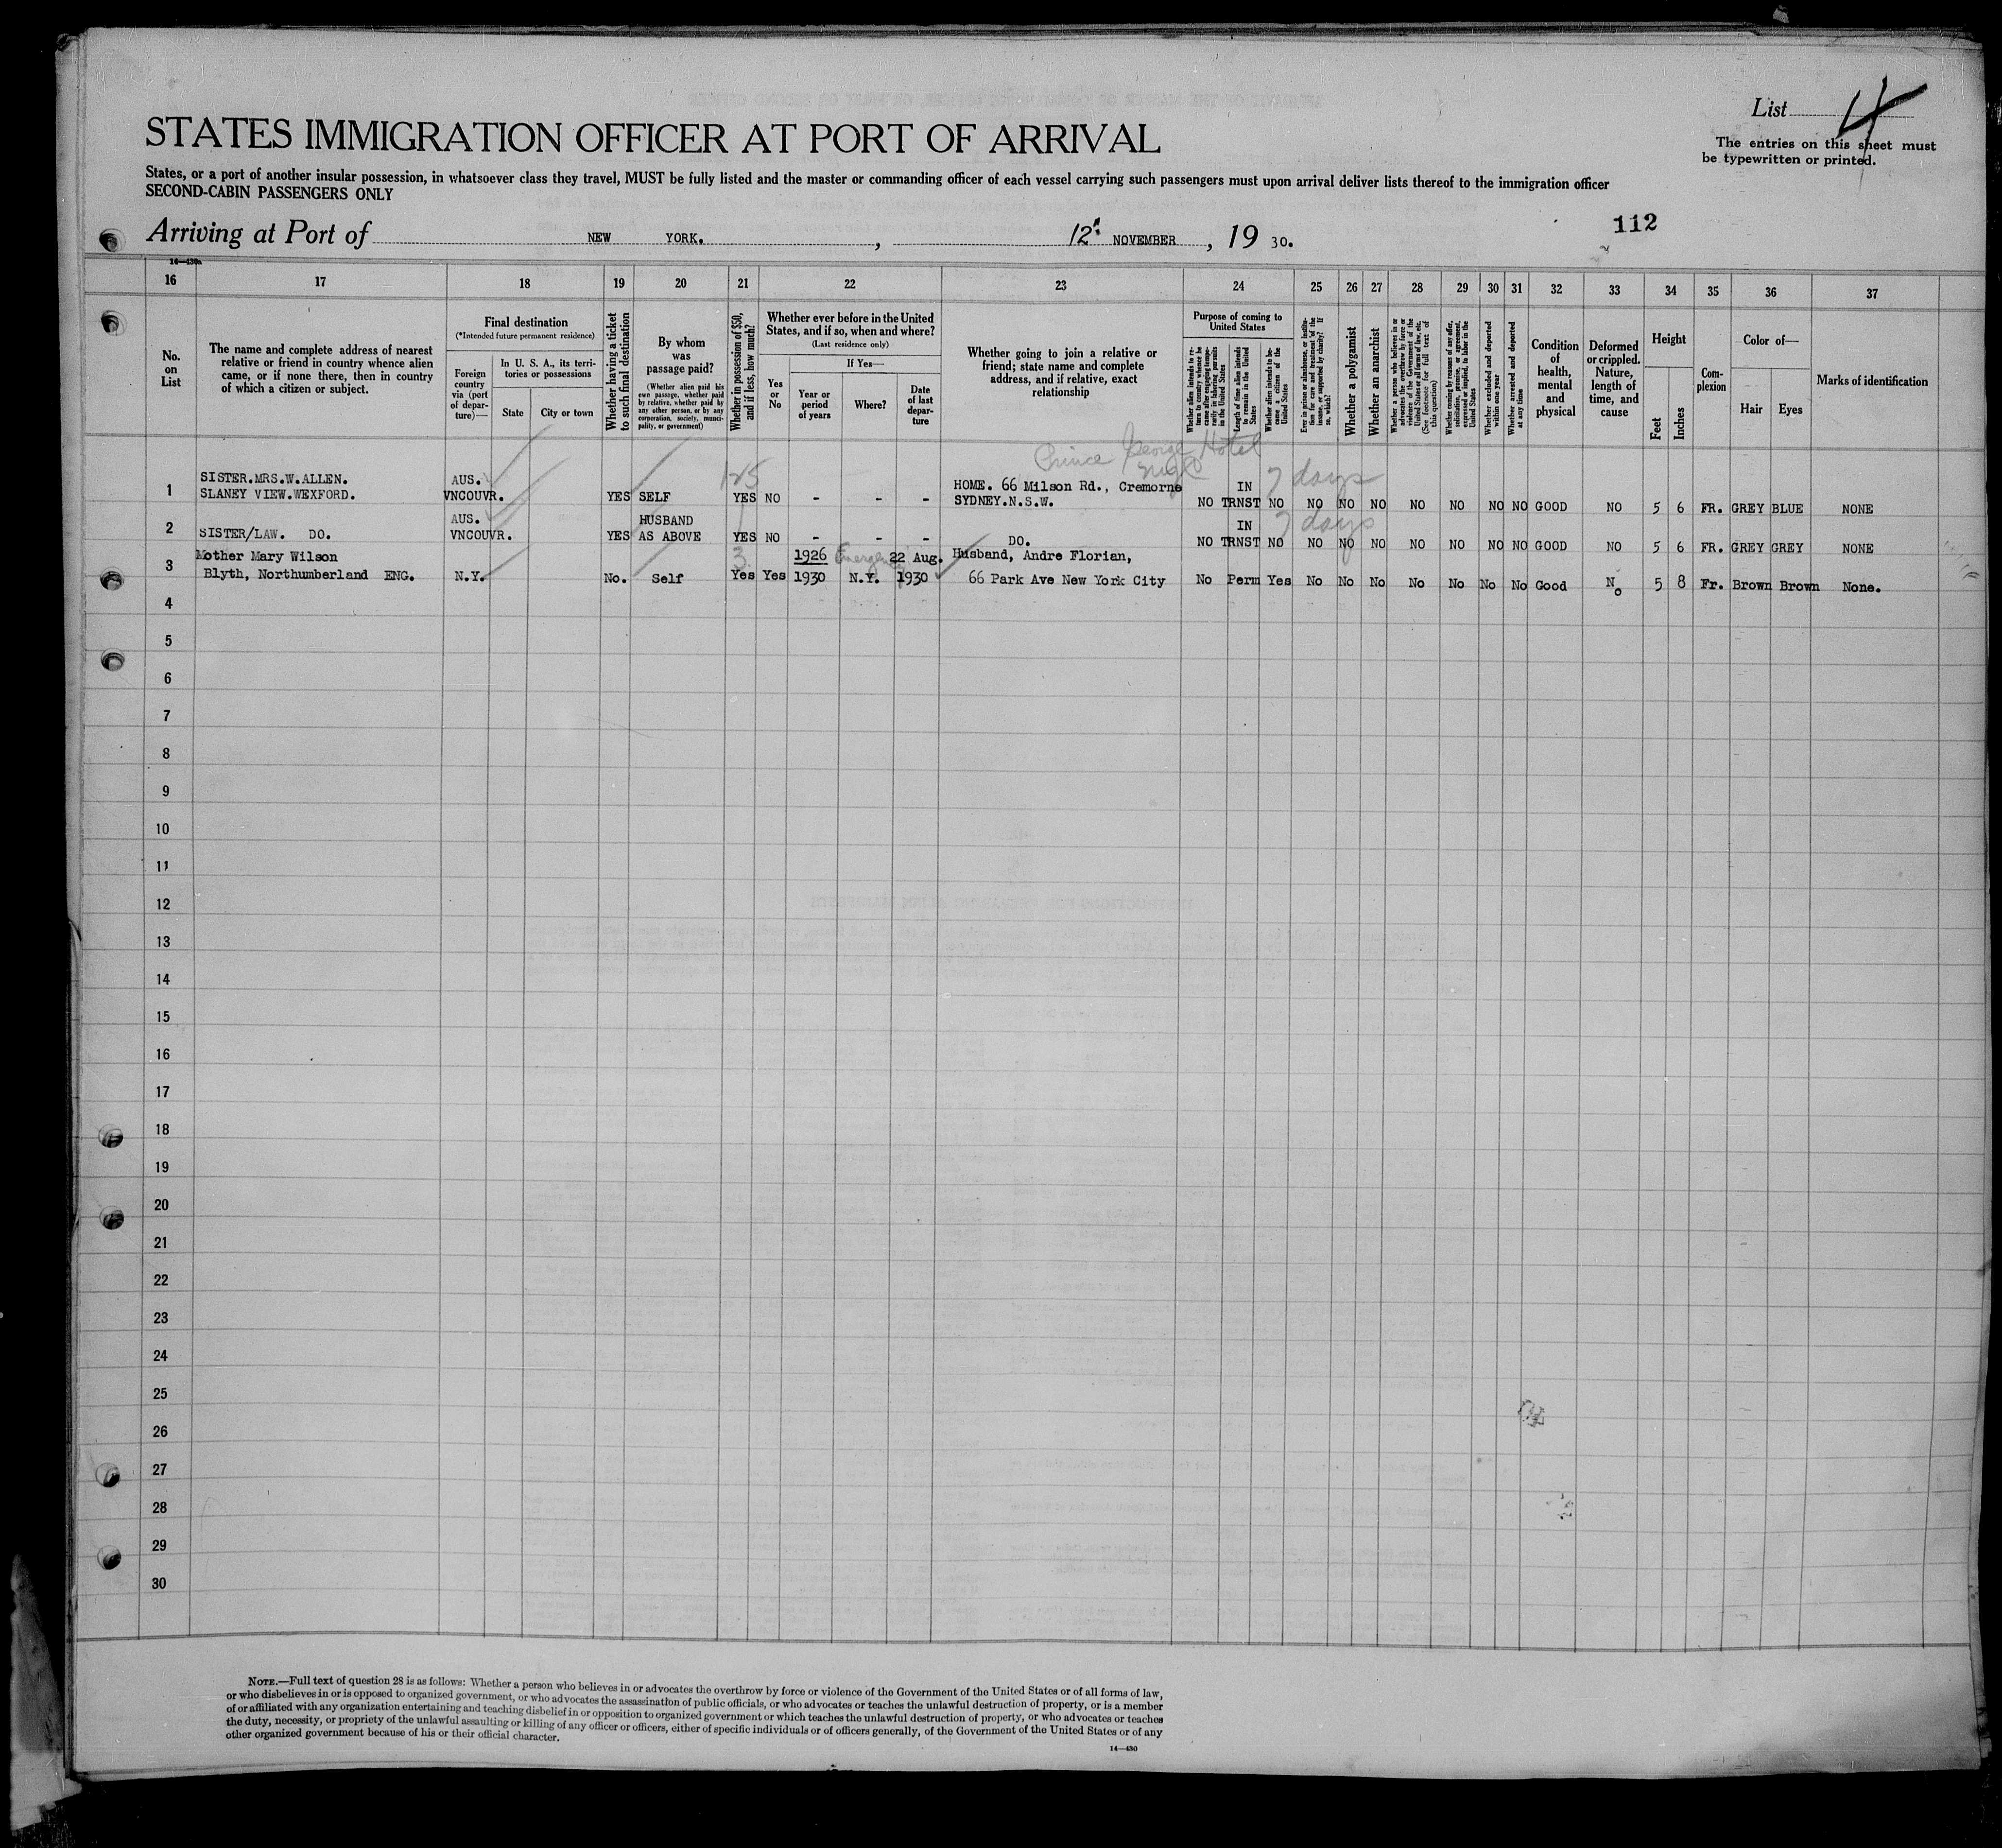 List 4
STATES IMMIGRATION OFFICER AT PORT OF ARRIVAL
The entries on this sheet must
be typewritten or printed.
States, or a port of another insular possession, in whatsoever class they travel, MUST be fully listed and the master or commanding officer of each vessel carrying such passengers must upon arrival deliver lists thereof to the immigration officer
SECOND-CABIN PASSENGERS ONLY
112
Arriving at Port of NEW YORK. , 12 NOVEMBER , 19 30.
14—430
16 17 18 19 20 21 22 23 24 25 26 27 28 29 30 31 32 33 34 35 36 37
No. on List
The name and complete address of nearest relative or friend in country whence alien came, or if none there, then in country of which a citizen or subject.
Final destination
(*Intended future permanent residence)
Foreign country via (port of departure)—
In U. S. A., its territories or possessions
State
City or town
Whether having a ticket to such final destination
By whom was passage paid?
(Whether alien paid his own passage, whether paid by relative, whether paid by any other person, or by any corporation, society, municipality, or government)
Whether in possession of $50, and if less, how much?
Whether ever before in the United States, and if so, when and where?
(Last residence only)
Yes or No
If Yes—
Year or period of years
Where?
Date of last departure
Whether going to join a relative or friend; state name and complete address, and if relative, exact relationship
Purpose of coming to United States
Whether alien intends to return to country whence he came after engaging temporarily in laboring pursuits in the United States
Length of time alien intends to remain in the United States
Whether alien intends to become a citizen of the United States
Ever in prison or almshouse, or institution for care and treatment of the insane, or supported by charity? If so, which?
Whether a polygamist
Whether an anarchist
Whether a person who believes in or advocates the overthrow by force or violence of the Government of the United States or all forms of law, etc. (See footnote for full text of this question)
Whether coming by reasons of any offer, solicitation, promise, or agreement, expressed or implied, to labor in the United States
Whether excluded and deported within one year
Whether arrested and deported at any time
Condition of health, mental and physical
Deformed or crippled. Nature, length of time, and cause
Height
Feet
Inches
Complexion
Color of—
Hair
Eyes
Marks of identification
Prince George Hotel
NYC
125
7 days
SISTER.MRS.W.ALLEN. AUS. HOME. 66 Milson Rd., Cremorne IN
1 SLANEY VIEW.WEXFORD. VNCOUVR. YES SELF YES NO - - - SYDNEY.N.S.W. NO TRNST NO NO NO NO NO NO NO NO GOOD NO 5 6 FR. GREY BLUE NONE
7 days
AUS. HUSBAND IN
2 SISTER/LAW. DO. VNCOUVR. YES AS ABOVE YES NO - - - DO. NO TRNST NO NO NO NO NO NO NO NO GOOD NO 5 6 FR. GREY GREY NONE
Mother Mary Wilson 3 1926 22 Aug. Husband, Andre Florian,
3 Blyth, Northumberland ENG. N.Y. No. Self Yes Yes 1930 N.Y. 1930 66 Park Ave New York City No Perm Yes No No No No No No No Good No 5 8 Fr. Brown Brown None.
4
5
6
7
8
9
10
11
12
13
14
15
16
17
18
19
20
21
22
23
24
25
26
27
28
29
30
NOTE.—Full text of question 28 is as follows: Whether a person who believes in or advocates the overthrow by force or violence of the Government of the United States or of all forms of law,
or who disbelieves in or is opposed to organized government, or who advocates the assassination of public officials, or who advocates or teaches the unlawful destruction of property, or is a member
of or affiliated with any organization entertaining and teaching disbelief in or opposition to organized government or which teaches the unlawful destruction of property, or who advocates or teaches
the duty, necessity, or propriety of the unlawful assaulting or killing of any officer or officers, either of specific individuals or of officers generally, of the Government of the United States or of any
other organized government because of his or their official character.
14—430